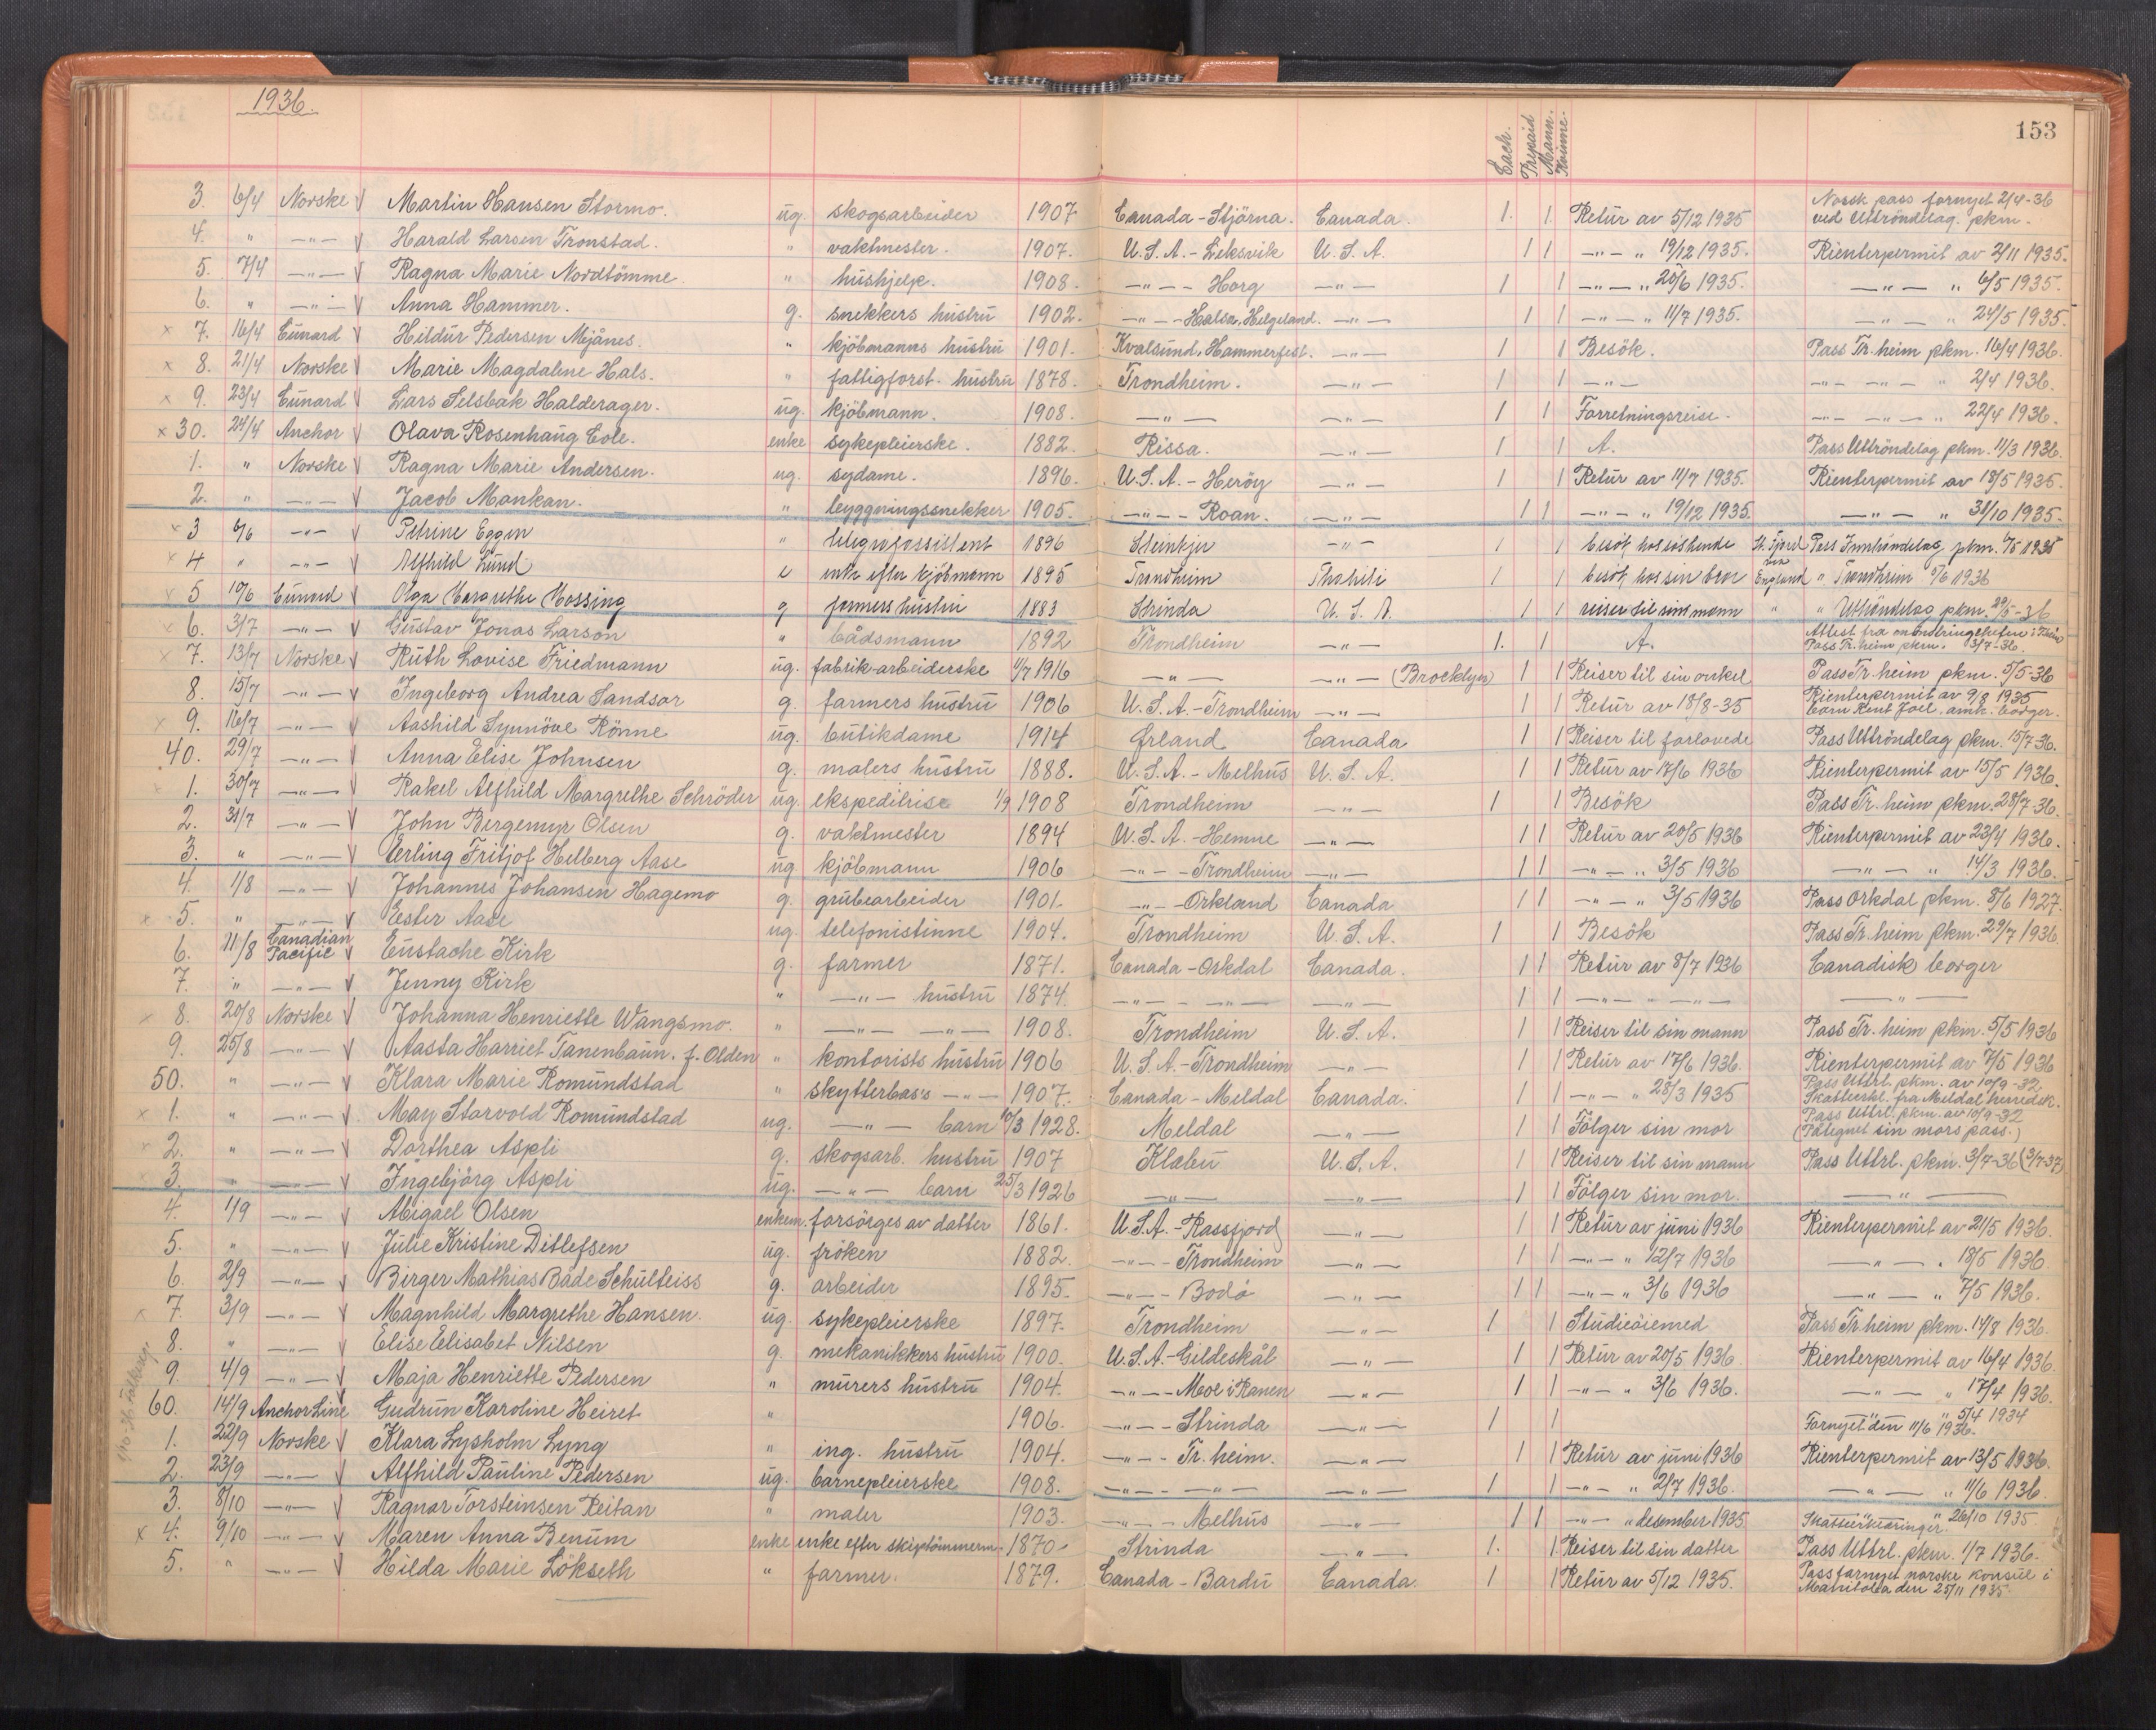 1936.
Cach. Prepaid Mann. Kvinne.
153
3. 6/4 Norske V Martin Hansen Stormo. ug. skogsarbeider 1907 Canada - Stjörna. Canada. 1. 1. Retur av 5/12 1935 Norsk pass fornyet 2/4-36 ved Uttröndelag. pkm.
4. " —"— V Harald Larsen Tronstad. " vaktmester. 1907. U.S.A. - Leksvik U.S.A. 1 1 —"— " 19/12 1935. Rienterpermit av 2/11 1935.
5. 7/4 —"— V Ragna Marie Nordtömme. " hushjelp. 1908. —"— - Horg —"— 1 1 —"— " 20/6 1935. —"— " 6/5 1935.
6. " —"— V Anna Hammer. g. snekkers hustru 1902. —"— - Halsa, Helgeland. —"— 1 1 —"— " 11/7 1935. —"— " 24/5 1935.
x 7. 16/4 Cunard V Hildur Pedersen Mjånes. " kjöbmanns hustru 1901. Kvalsund, Hammerfest. —"— 1 1 Besök. Pass Tr.heim pkm. 16/4 1936.
x 8. 21/4 Norske V Marie Magdalene Hals. " fattigforst. hustru 1878. Trondheim. —"— 1 1 —"— —"— —"— " 2/4 1936.
x 9. 23/4 Cunard V Lars Selsbak Halderager. ug. kjöbmann. 1908. —"— —"— 1 1 Forretningsreise. —"— —"— " 22/4 1936.
x 30. 24/4 Anchor V Olava Rosenhaug Cole. enke sykepleierske. 1882. Rissa. —"— 1 1 A. Pass Uttröndelag pkm. 11/3 1936.
1. " Norske V Ragna Marie Andersen. ug. sydame. 1896. U.S.A. - Heröy —"— 1 1 Retur av 11/7 1935. Rienterpermit av 18/5 1935.
2. " —"— V Jacob Monkan. " byggningssnekker 1905. —"— - Roan. —"— 1 1 —"— " 19/12 1935. —"— " 31/10 1935.
x 3 6/6 —"— V Petrine Eggen " telegrafassistent 1896 Steinkjer —"— 1 1 besök hos söskende Pass Inntröndelag pkm.
x 4 " —"— V Alfhild Lund e enke efter kjöbmann 1895 Trondheim Thahiti 1 1 besök hos sin bror England " Trondheim 1936
x 5 10/6 Cunard V Olga Margrethe Mossing g farmers hustru 1883 Strinda U.S.A. 1 1 reiser til sin mann " " Uttröndelag pkm. 29/5-36
x 6. 3/7 —"— V Gustav Jonas Larson " bådsmann 1892 Trondheim —"— 1. 1 A. Attest fra mönstringschefen i Tr.heim Pass Tr.heim pkm. 3/7-36.
x 7. 13/7 Norske V Ruth Lovise Friedmann ug. fabrik-arbeiderske 1/7 1916 —"— —"— (Brocklyn) 1 1 Reiser til sin onkel Pass Tr.heim pkm. 5/5-36
8. 15/7 —"— V Ingeborg Andrea Sandsor g. farmers hustru 1906 U.S.A. - Trondheim —"— 1 1 Retur av 18/8-35 Rienterpermit av 9/8 1935 barn Kent Joel. amk. borger.
x 9. 16/7 —"— V Aashild Synnöve Rönne ug. butikdame 1914 Örland Canada 1 1 Reiser til forlovede Pass Uttröndelag pkm. 15/7-36.
40. 29/7 —"— V Anna Elise Johnsen g. malers hustru 1888. U.S.A. - Melhus U.S.A. 1 1 Retur av 17/6 1936 Rienterpermit av 15/5 1936.
1. 30/7 —"— V Rakel Alfhild Margrethe Schröder ug. ekspeditrise 1/9 1908 Trondheim —"— 1 1 Besök Pass Tr.heim pkm. 28/7-36.
2. 31/7 —"— V John Bergemyr Olsen g. vaktmester 1894 U.S.A. - Hemne —"— 1 1 Retur av 20/5 1936 Rienterpermit av 23/4 1936.
3. " —"— V Erling Fritjof Helberg Aase ug kjöbmann 1906 —"— - Trondheim —"— 1 1 —"— " 3/5 1936 —"— " 14/3 1936.
4. 1/8 —"— V Johannes Johansen Hagemo g. grubearbeider 1901. —"— - Orkland Canada 1 1 —"— " 3/5 1936 Pass Orkdal pkm. 8/6 1927.
x 5. " —"— V Ester Aase ug. telefonistinne 1904. Trondheim U.S.A. 1 1 Besök Pass Tr.heim pkm. 29/7 1936
6. 11/8 Canadian Pacific V Eustache Kirk g. farmer 1871. Canada - Orkdal Canada. 1 1 Retur av 8/7 1936 Canadisk borger
7. " —"— V Jenny Kirk " —"— hustru 1874. —"— - —"— —"— 1 1 —"— - —"— —"—
x 8. 20/8 Norske V Johanna Henriette Wangsmo. " —"— —"— 1908. Trondheim U.S.A. 1 1 Reiser til sin mann Pass Tr.heim pkm. 5/5 1936
9. 25/8 —"— V Aasta Harriet Tanenbaun. f. Olden " kontorists hustru 1906 U.S.A. - Trondheim —"— 1 1 Retur av 17/6 1936. Rienterpermit av 7/5 1936
50. " —"— V Klara Marie Romundstad " skytterbas's —"— 1907. Canada - Meldal Canada. 1 1 —"— " 28/3 1935 Pass Uttrl. pkm. av 10/9-32 Skatteerkl. fra Meldal herredsk.
x 1. " —"— V May Storvold Romundstad ug. —"— barn 10/3 1928. Meldal —"— 1 1 Fölger sin mor Pass Uttrl. pkm. av 10/9-32 (Påtegnet sin mors pass.)
x 2. " —"— V Dorthea Aspli g. skogsarb. hustru 1907 Klæbu U.S.A. 1 1 Reiser til sin mann Pass Uttrl. pkm. 3/7-36 (3/7-37)
x 3. " —"— V Ingebjörg Aspli ug. —"— barn 25/3 1926 —"— —"— 1 1 Fölger sin mor. —"—
4. 1/9 —"— V Abigael Olsen enkem. forsörges av datter 1861. U.S.A. - Rassfjord —"— 1 1 Retur av juni 1936 Rienterpermit av 21/5 1936.
5. " —"— V Julie Kristine Ditlefsen ug. fröken 1882. —"— - Trondheim —"— 1 1 —"— " 12/7 1936 —"— " 18/5 1936
6. 2/9 —"— V Birger Mathias Bade Schulteiss g. arbeider 1895. —"— - Bodö —"— 1 1 —"— " 3/6 1936 —"— " 7/5 1936.
x 7. 3/9 —"— V Magnhild Margrethe Hansen. ug. sykepleierske 1897. Trondheim —"— 1 1 Studieöiemed Pass Tr.heim pkm. 14/8 1936.
8. " —"— Elise Elisabet Nilsen g. mekanikkers hustru 1900. U.S.A. - Gildeskål —"— 1 1 Retur av 20/5 1936. Rienterpermit av 16/4 1936.
9. 4/9 —"— V Maja Henriette Pedersen " murers hustru 1904. —"— - Moe i Ranen —"— 1 1 —"— " 3/6 1936. —"— " 17/4 1936.
60. 14/9 Anchor Line Gudrun Karoline Heiret " 1906. —"— - Strinda —"— 1 1 —"— " 5/4 1934 Fornyet den 11/6 1936.
1. 22/9 Norske V Klara Lysholm Lyng " ing. hustru 1904. —"— - Tr.heim. —"— 1 1 Retur av juni 1936 Rienterpermit av 13/5 1936.
2. 23/9 —"— V Alfhild Pauline Pedersen ug. barnepleierske 1908. —"— - —"— —"— 1 1 —"— " 2/7 1936. —"— " 11/6 1936.
3. 8/10 —"— V Ragnar Torsteinsen Reitan " maler 1903. —"— - Melhus —"— 1 1 —"— " desember 1935 —"— " 26/10 1935. Skatteerklæringer.
x 4. 9/10 —"— V Maren Anna Benum enke enke efter skipstömmerm. 1870 Strinda —"— 1. 1. Reiser til sin datter Pass Uttrl. pkm. 1/7 1936.
5. " —"— V Hilda Marie Lökseth " farmer. 1879. Canada - Bardu Canada. 1 1 Retur av 5/12 1935. Pass fornyet norske konsul i Manitoba den 25/11 1935